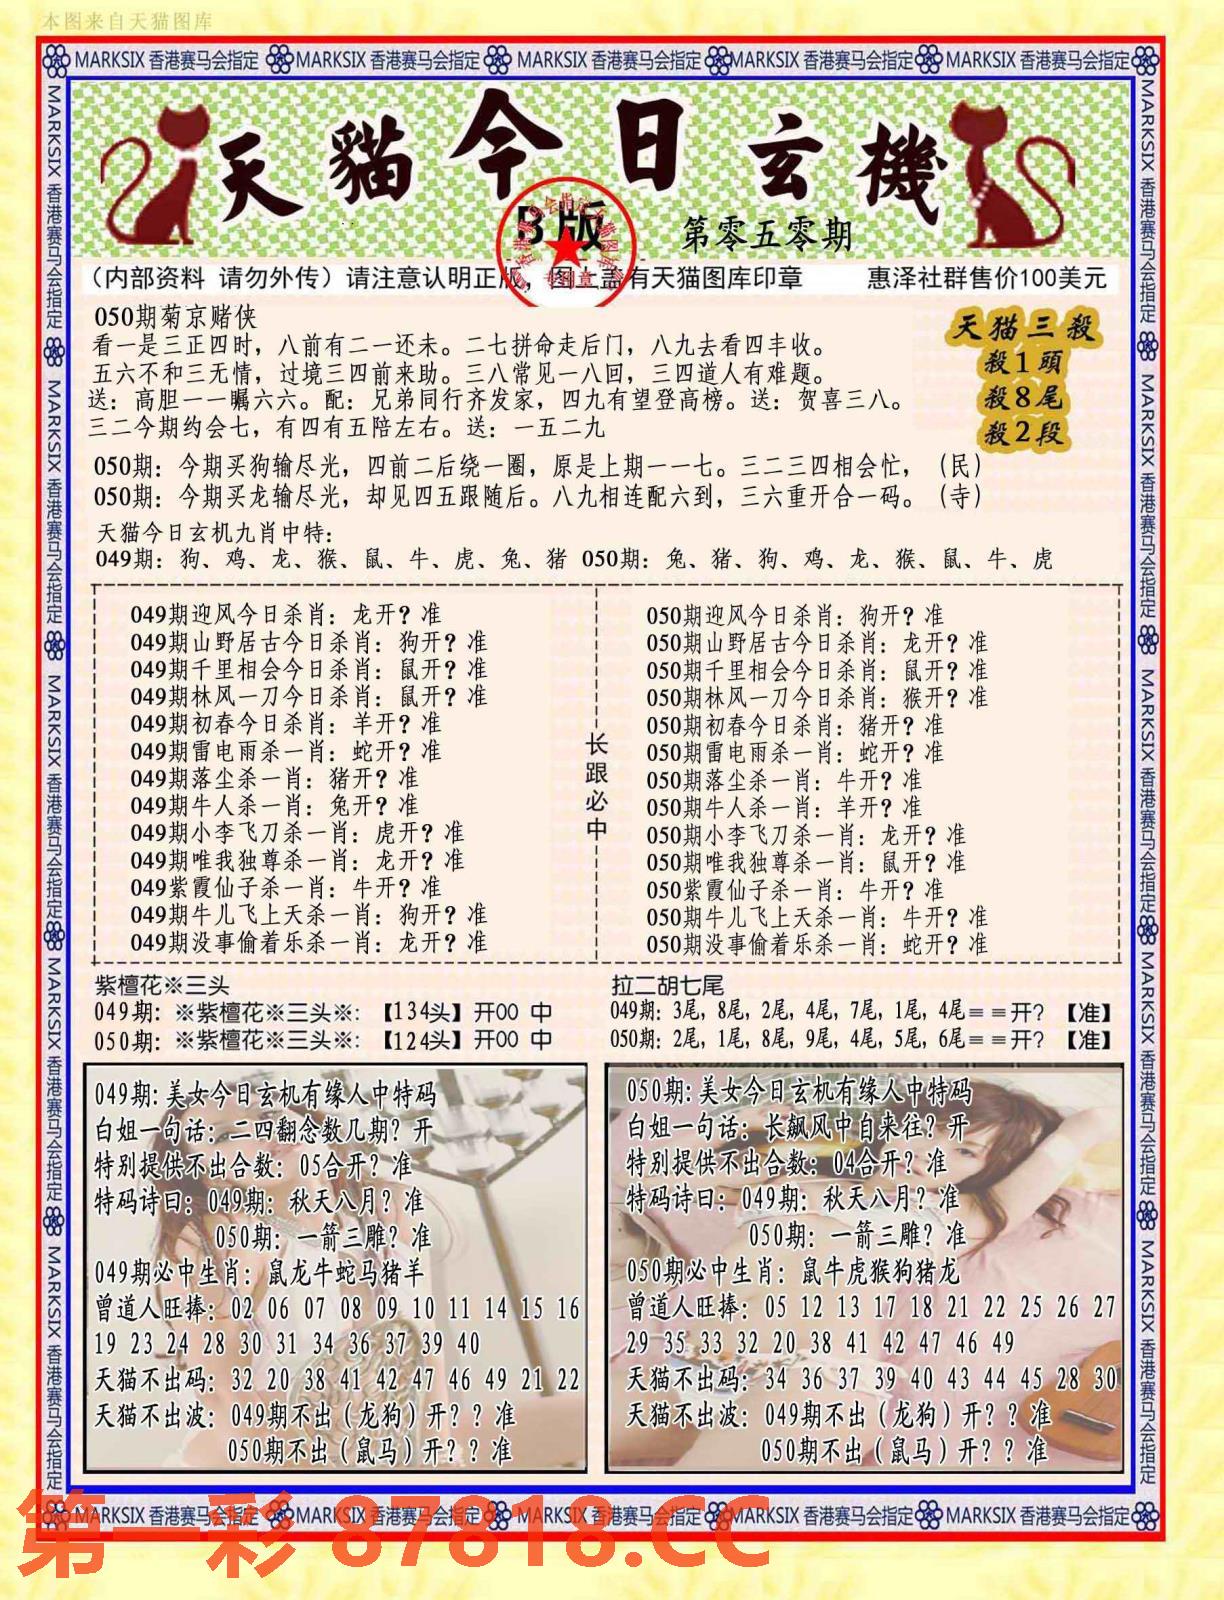 本图来自天猫图库
MARKSIX 香港赛马会指定 MARKSIX 香港赛马会指定 MARKSIX 香港赛马会指定 MARKSIX 香港赛马会指定 MARKSIX 香港赛马会指定
天貓今日玄機
B版
第零五零期
（内部资料 请勿外传）请注意认明正版，图上盖有天猫图库印章 惠泽社群售价100美元
050期菊京赌侠
看一是三正四时，八前有二一还未。二七拼命走后门，八九去看四丰收。
五六不和三无情，过境三四前来助。三八常见一八回，三四道人有难题。
送：高胆一一瞩六六。配：兄弟同行齐发家，四九有望登高榜。送：贺喜三八。
三二今期约会七，有四有五陪左右。送：一五二九
天猫三殺
殺1頭
殺8尾
殺2段
050期：今期买狗输尽光，四前二后绕一圈，原是上期一一七。三二三四相会忙，（民）
050期：今期买龙输尽光，却见四五跟随后。八九相连配六到，三六重开合一码。（寺）
天猫今日玄机九肖中特：
049期：狗、鸡、龙、猴、鼠、牛、虎、兔、猪 050期：兔、猪、狗、鸡、龙、猴、鼠、牛、虎
049期迎风今日杀肖：龙开？准
049期山野居古今日杀肖：狗开？准
049期千里相会今日杀肖：鼠开？准
049期林风一刀今日杀肖：鼠开？准
049期初春今日杀肖：羊开？准
049期雷电雨杀一肖：蛇开？准
049期落尘杀一肖：猪开？准
049期牛人杀一肖：兔开？准
049期小李飞刀杀一肖：虎开？准
049期唯我独尊杀一肖：龙开？准
049紫霞仙子杀一肖：牛开？准
049期牛儿飞上天杀一肖：狗开？准
049期没事偷着乐杀一肖：龙开？准
长跟必中
050期迎风今日杀肖：狗开？准
050期山野居古今日杀肖：龙开？准
050期千里相会今日杀肖：鼠开？准
050期林风一刀今日杀肖：猴开？准
050期初春今日杀肖：猪开？准
050期雷电雨杀一肖：蛇开？准
050期落尘杀一肖：牛开？准
050期牛人杀一肖：羊开？准
050期小李飞刀杀一肖：龙开？准
050期唯我独尊杀一肖：鼠开？准
050紫霞仙子杀一肖：牛开？准
050期牛儿飞上天杀一肖：牛开？准
050期没事偷着乐杀一肖：蛇开？准
紫檀花※三头
049期：※紫檀花※三头※：【134头】开00 中
050期：※紫檀花※三头※：【124头】开00 中
拉二胡七尾
049期：3尾，8尾，2尾，4尾，7尾，1尾，4尾＝＝开？【准】
050期：2尾，1尾，8尾，9尾，4尾，5尾，6尾＝＝开？【准】
049期：美女今日玄机有缘人中特码
白姐一句话：二四翻念数几期？开
特别提供不出合数：05合开？准
特码诗曰：049期：秋天八月？准
050期：一箭三雕？准
049期必中生肖：鼠龙牛蛇马猪羊
曾道人旺捧：02 06 07 08 09 10 11 14 15 16
19 23 24 28 30 31 34 36 37 39 40
天猫不出码：32 20 38 41 42 47 46 49 21 22
天猫不出波：049期不出（龙狗）开？？准
050期不出（鼠马）开？？准
050期：美女今日玄机有缘人中特码
白姐一句话：长飙风中自来往？开
特别提供不出合数：04合开？准
特码诗曰：049期：秋天八月？准
050期：一箭三雕？准
050期必中生肖：鼠牛虎猴狗猪龙
曾道人旺捧：05 12 13 17 18 21 22 25 26 27
29 35 33 32 20 38 41 42 47 46 49
天猫不出码：34 36 37 39 40 43 44 45 28 30
天猫不出波：049期不出（龙狗）开？？准
050期不出（鼠马）开？？准
MARKSIX 香港赛马会指定 MARKSIX 香港赛马会指定 MARKSIX 香港赛马会指定 MARKSIX 香港赛马会指定 MARKSIX 香港赛马会指定
MARKSIX 香港赛马会指定 MARKSIX 香港赛马会指定 MARKSIX 香港赛马会指定 MARKSIX 香港赛马会指定 MARKSIX 香港赛马会指定
MARKSIX 香港赛马会指定 MARKSIX 香港赛马会指定 MARKSIX 香港赛马会指定 MARKSIX 香港赛马会指定 MARKSIX 香港赛马会指定
第一彩 87818.CC